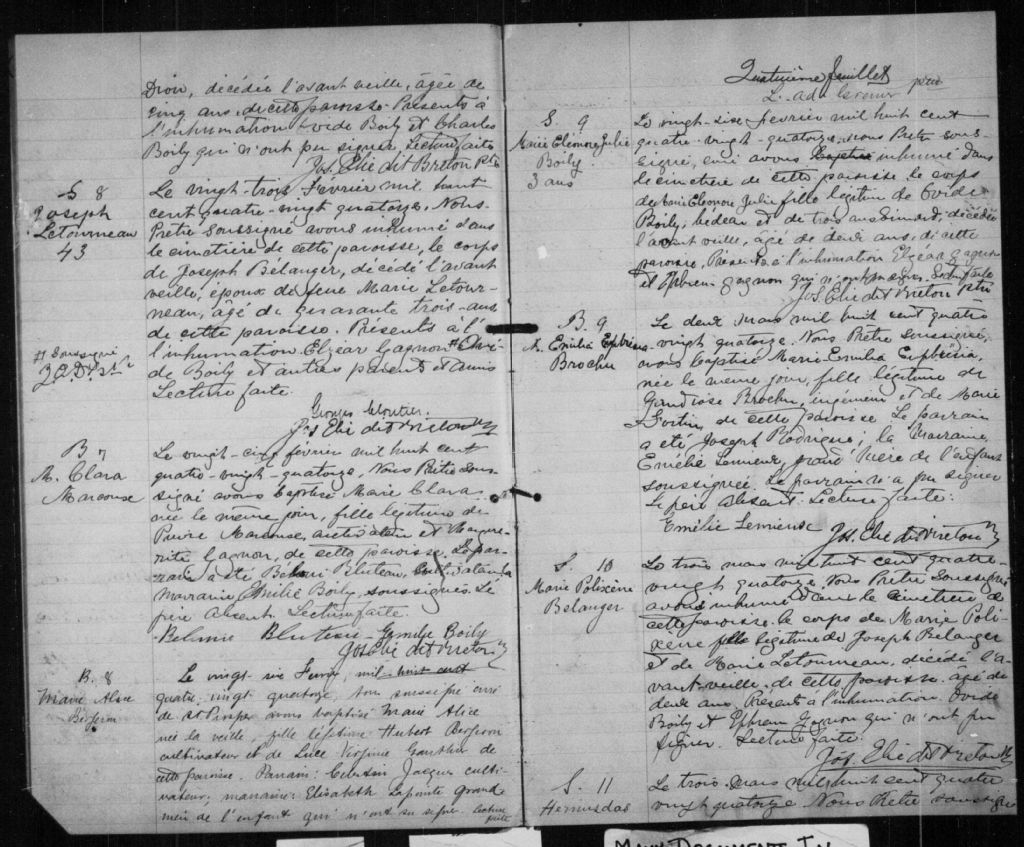 Dion, décédée l'avant veille, âgée de
cinq ans, de cette paroisse. Présents à
l'inhumation Ovide Boily et Charles
Boily qui n'ont pu signer. Lecture faite
Jos. Elie dit Breton Ptre
S. 8
Joseph
Letourneau
43
Le vingt-trois Février mil huit
cent quatre-vingt quatorze. Nous
Prêtre soussigné avons inhumé dans
le cimetière de cette paroisse, le corps
de Joseph Bélanger, décédé l'avant
veille, époux de feue Marie Letour-
neau, âgé de quarante trois ans
de cette paroisse. Présents à l'
inhumation Elzéar Gagnon # Ovi-
de Boily et autres parents et amis
Lecture faite.
# Soussigné
Georges Cloutier
Jos Elie dit Breton
B 7
M. Clara
Marcouse
Le vingt-cinq février mil huit cent
quatre-vingt-quatorze. Nous Prêtre sous-
signé avons baptisé Marie Clara
née le même jour, fille légitime de
Pierre Marcouse, et Margue-
rite Gagnon, de cette paroisse. Le par-
rain a été Bluteau,
Marraine Emilie Boily, soussignés. Le
père absent. Lecture faite.
Bluteau - Emilie Boily
Jos Elie dit Breton
B. 8
Marie Alice
Bergeron
Le vingt-six Février mil huit cent
quatre vingt quatorze, nous soussigné curé
de St Prosper avons baptisé Marie Alice
née la veille, fille légitime Hubert Bergeron
cultivateur et de Luce Virginie Gauthier de
cette paroisse. Parrain: Célestin Jacques culti-
vateur; marraine: Elisabeth Lapointe grand
mère de l'enfant qui n'ont su signer. Lecture
faite
Quatrième feuillet
S. 9
Marie Eléonore Julie
Boily
3 ans
Le vingt-six février mil huit cent
quatre-vingt-quatorze, nous Prêtre sous-
signé, curé avons baptisé inhumé dans
le cimetière de cette paroisse le corps
de Marie Eléonore Julie fille légitime de Ovide
Boily, bedeau et de décédée
l'avant veille, âgée de deux ans, de cette
paroisse. Présents à l'inhumation Elzéar Gagnon
et Ephrem Gagnon qui n'ont pu signer. Lecture faite
Jos. Elie dit Breton Ptre
B. 9
M. Emilia Euphémia
Brochu
Le deux mars mil huit cent quatre
vingt quatorze. Nous Prêtre soussigné,
avons baptisé Marie Emilia Euphémia,
née le même jour, fille légitime de
Gaudiose Brochu, ingénieur et de Marie
Fortin de cette paroisse. Le parrain
a été Joseph Rodrigue; la Marraine
Emélie Lemieux, grand'mère de l'enfant
soussignée. Le parrain n'a pu signer
Le père absent. Lecture faite.
Emélie Lemieux
Jos. Elie dit Breton
S. 10
Marie Polixène
Belanger
Le trois mars mil huit cent quatre
vingt quatorze. Nous Prêtre soussigné
avons inhumé dans le cimetière de
cette paroisse le corps de Marie Poli-
xène fille légitime de Joseph Bélanger
et de Marie Letourneau, décédé l'a-
vant veille, de cette paroisse, âgée de
deux ans. Présents à l'inhumation Ovide
Boily et Ephrem Gagnon qui n'ont pu
signer. Lecture faite.
Jos. Elie dit Breton
S. 11
Hermesdas
Le trois mars mil huit cent quatre
vingt quatorze. Nous Prêtre soussigné